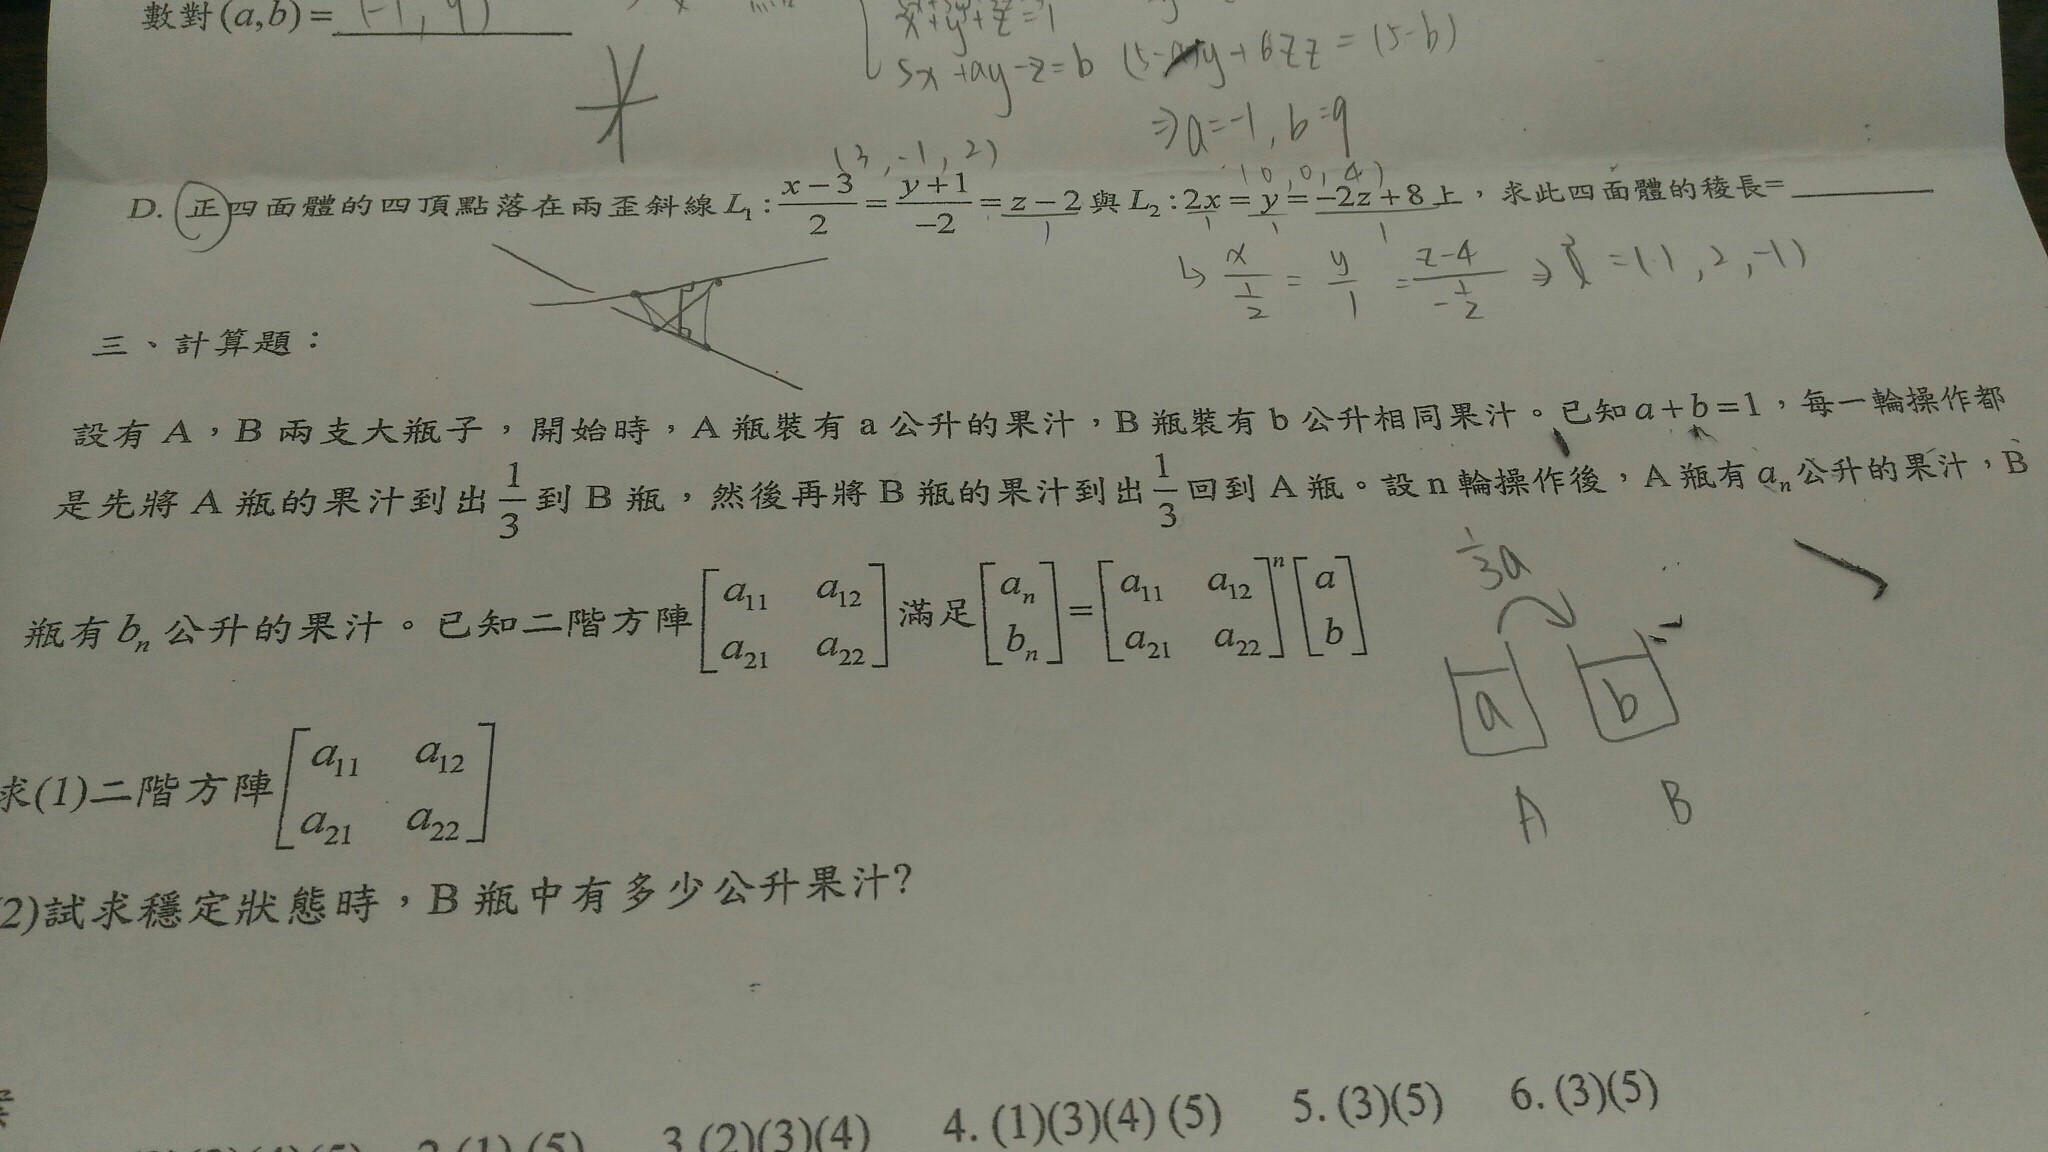 數對(a,b)= (-1, 9)
x+y+z=1
5x+ay-z=b (5-a)y+6z = (5-b)
⇒a=-1, b=9
(3, -1, 2) (0, 0, 4)
D. 正四面體的四頂點落在兩歪斜線L₁: \frac{x-3}{2}=\frac{y+1}{-2}=z-2與L₂:2x=y=-2z+8上，求此四面體的稜長=
1 1 1 1
↳ \frac{x}{\frac{1}{2}} = \frac{y}{1} = \frac{z-4}{-\frac{1}{2}} ⇒ =(1, 2, -1)
三、計算題：
設有A，B兩支大瓶子，開始時，A瓶裝有a公升的果汁，B瓶裝有b公升相同果汁。已知a+b=1，每一輪操作都
是先將A瓶的果汁到出\frac{1}{3}到B瓶，然後再將B瓶的果汁到出\frac{1}{3}回到A瓶。設n輪操作後，A瓶有aₙ公升的果汁，B
瓶有bₙ公升的果汁。已知二階方陣[a₁₁ a₁₂; a₂₁ a₂₂]滿足[aₙ; bₙ]=[a₁₁ a₁₂; a₂₁ a₂₂]ⁿ[a; b]
\frac{1}{3}a
a b
A B
求(1)二階方陣[a₁₁ a₁₂; a₂₁ a₂₂]
2)試求穩定狀態時，B瓶中有多少公升果汁?
3.(2)(3)(4) 4. (1)(3)(4) (5) 5. (3)(5) 6. (3)(5)